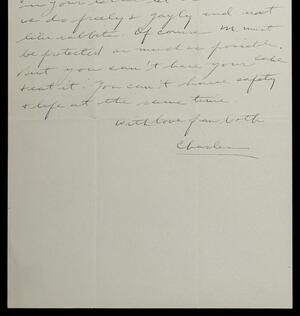 in your
us do freely & gayly and not
like rabbits. Of course M must
be protected as much as possible.
But you can't have your cake
& eat it. You can't have safety
& life at the same time.
With love from both
Charles